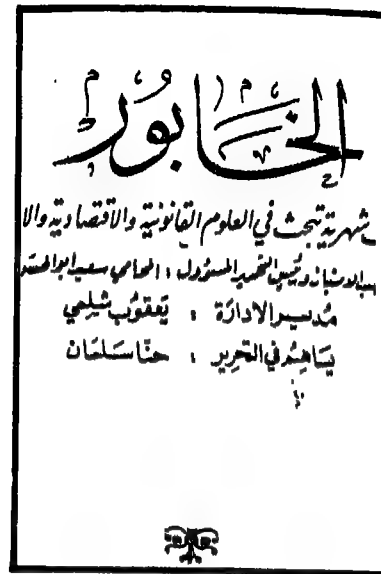 الخابور
شهرية تبحث في العلوم القانونية والاقتصادية والا
ورئيس التحرير المسؤول : المحامي سعيد ابو الحسن
مديسر الادارة : يعقوب شلمي
يساهم في التحرير : حنا سلمان